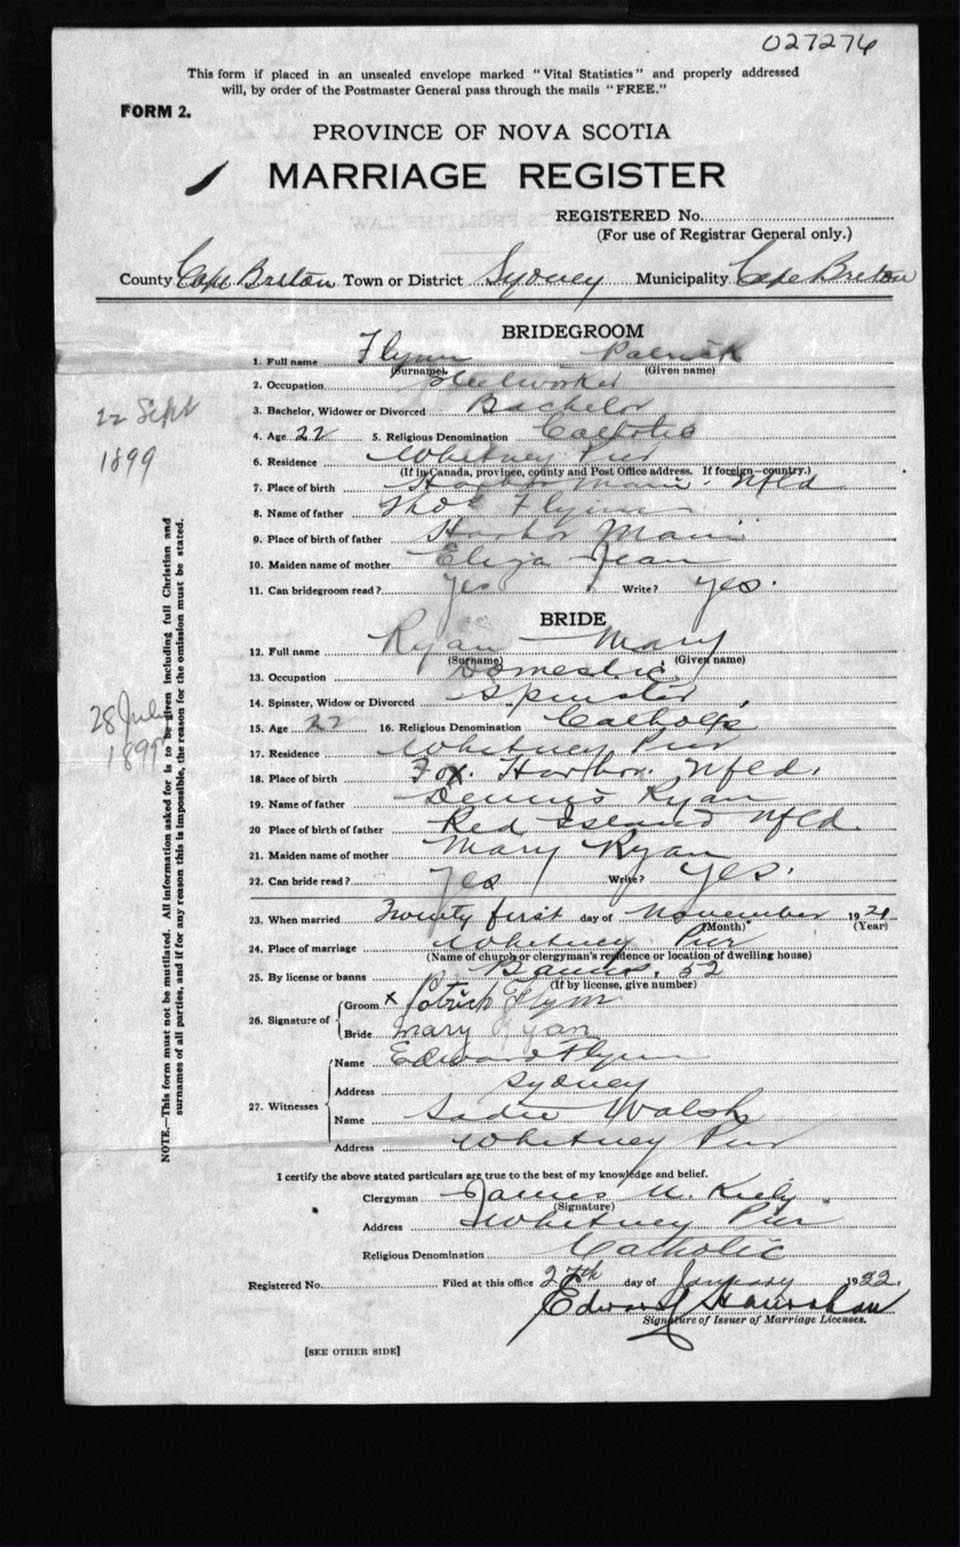 027276
This form if placed in an unsealed envelope marked "Vital Statistics" and properly addressed
will, by order of the Postmaster General pass through the mails "FREE."
FORM 2.
PROVINCE OF NOVA SCOTIA
MARRIAGE REGISTER
REGISTERED No.
(For use of Registrar General only.)
County Cape Breton Town or District Sydney Municipality Cape Breton
BRIDEGROOM
1. Full name Flynn Patrick
(Surname) (Given name)
2. Occupation Steelworker
3. Bachelor, Widower or Divorced Bachelor
22 Sept
4. Age 22 5. Religious Denomination Catholic
1899
6. Residence Whitney Pier
(If in Canada, province, county and Post Office address. If foreign—country.)
7. Place of birth Harbor Main. Nfld
8. Name of father Thos Flynn
9. Place of birth of father Harbor Main
10. Maiden name of mother Eliza Jean
11. Can bridegroom read? Yes Write? Yes.
BRIDE
12. Full name Ryan Mary
(Surname) (Given name)
13. Occupation Domestic
14. Spinster, Widow or Divorced Spinster
28 July
15. Age 22 16. Religious Denomination Catholic
1899
17. Residence Whitney Pier
18. Place of birth Fox. Harbor. Nfld.
19. Name of father Dennis Ryan
20 Place of birth of father Red Island Nfld.
21. Maiden name of mother Mary Ryan
22. Can bride read? Yes Write? Yes.
23. When married Twenty first day of November 1921
(Month) (Year)
24. Place of marriage Whitney Pier
(Name of church or clergyman's residence or location of dwelling house)
25. By license or banns Banns. 52
(If by license, give number)
26. Signature of Groom x Patrick Flynn
Bride Mary Ryan
27. Witnesses Name Edward Flynn
Address Sydney
Name Sadie Walsh
Address Whitney Pier
I certify the above stated particulars are true to the best of my knowledge and belief.
Clergyman James M. Kiely
(Signature)
Address Whitney Pier
Religious Denomination Catholic
Registered No. Filed at this office day of January 1922.
Edward
Signature of Issuer of Marriage Licenses.
[SEE OTHER SIDE]
NOTE.—This form must not be mutilated. All information asked for is to be given including full Christian and
surnames of all parties, and if for any reason this is impossible, the reason for the omission must be stated.